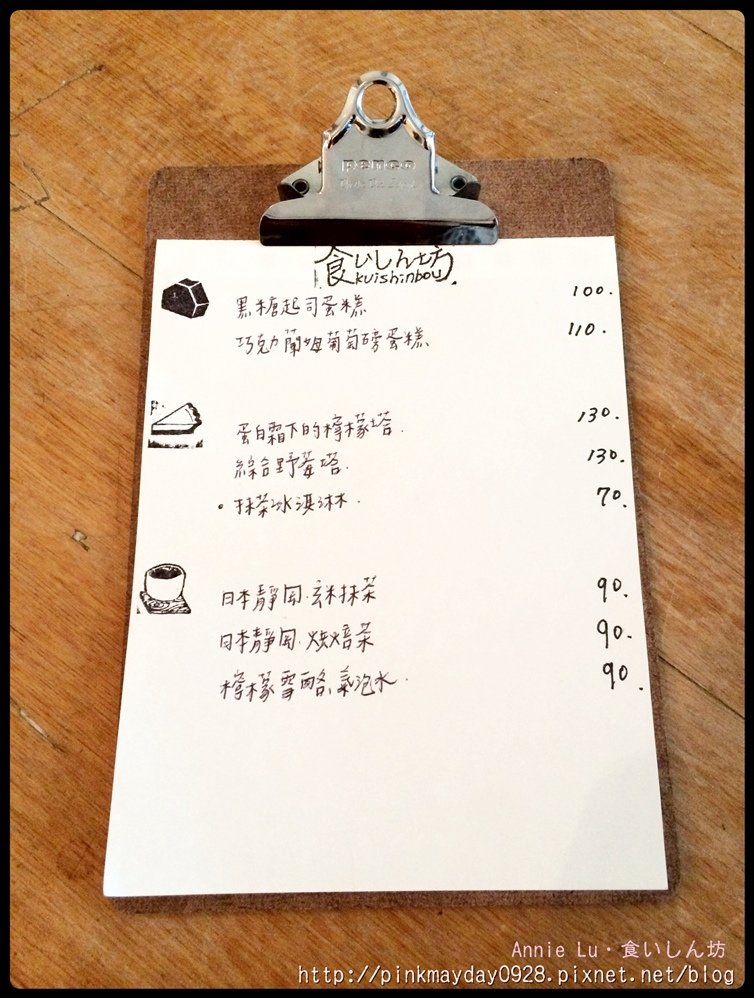 penco
食いしん坊
kuishinbou.
黒糖起司蛋糕 100.
巧克力蘭姆葡萄磅蛋糕 110.
蛋白霜下的檸檬塔. 130.
綜合野莓塔. 130.
• 抹茶冰淇淋. 70.
日本靜岡.玄米抹茶 90.
日本靜岡.烘焙茶 90.
檸檬雪酪氣泡水. 90.
Annie Lu・食いしん坊
http://pinkmayday0928.pixnet.net/blog